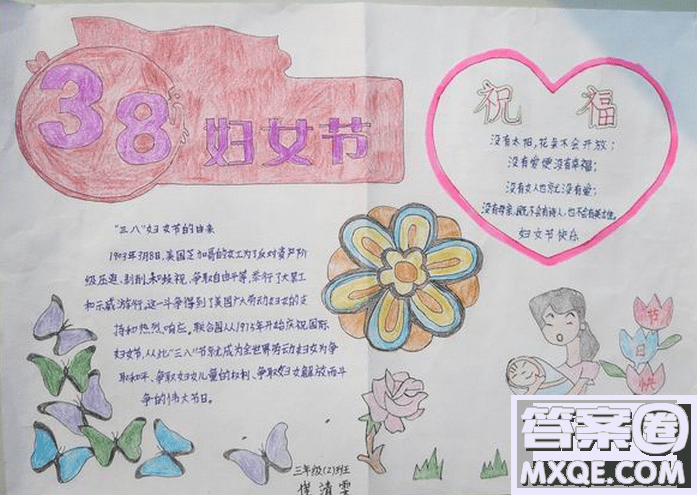 38妇女节
"三八"妇女节的由来
1903年3月8日,美国芝加哥的女工为了反对资产阶
级压迫、剥削和歧视,争取自由平等,举行了大罢工
和示威游行,这一斗争得到了美国广大劳动妇女的支
持和热烈响应。联合国从1975年开始庆祝国际
妇女节,从此"三八"节就成为全世界劳动妇女为争
取和平、争取妇女儿童的权利、争取妇女解放而斗
争的伟大节日。
祝福
没有太阳,花朵不会开放;
没有爱便没有幸福;
没有女人也就没有爱;
没有母亲,既不会有诗人,也不会有英雄。
妇女节快乐
节
日
快
三年级(2)班
清雯
答案圈
MXQE.COM